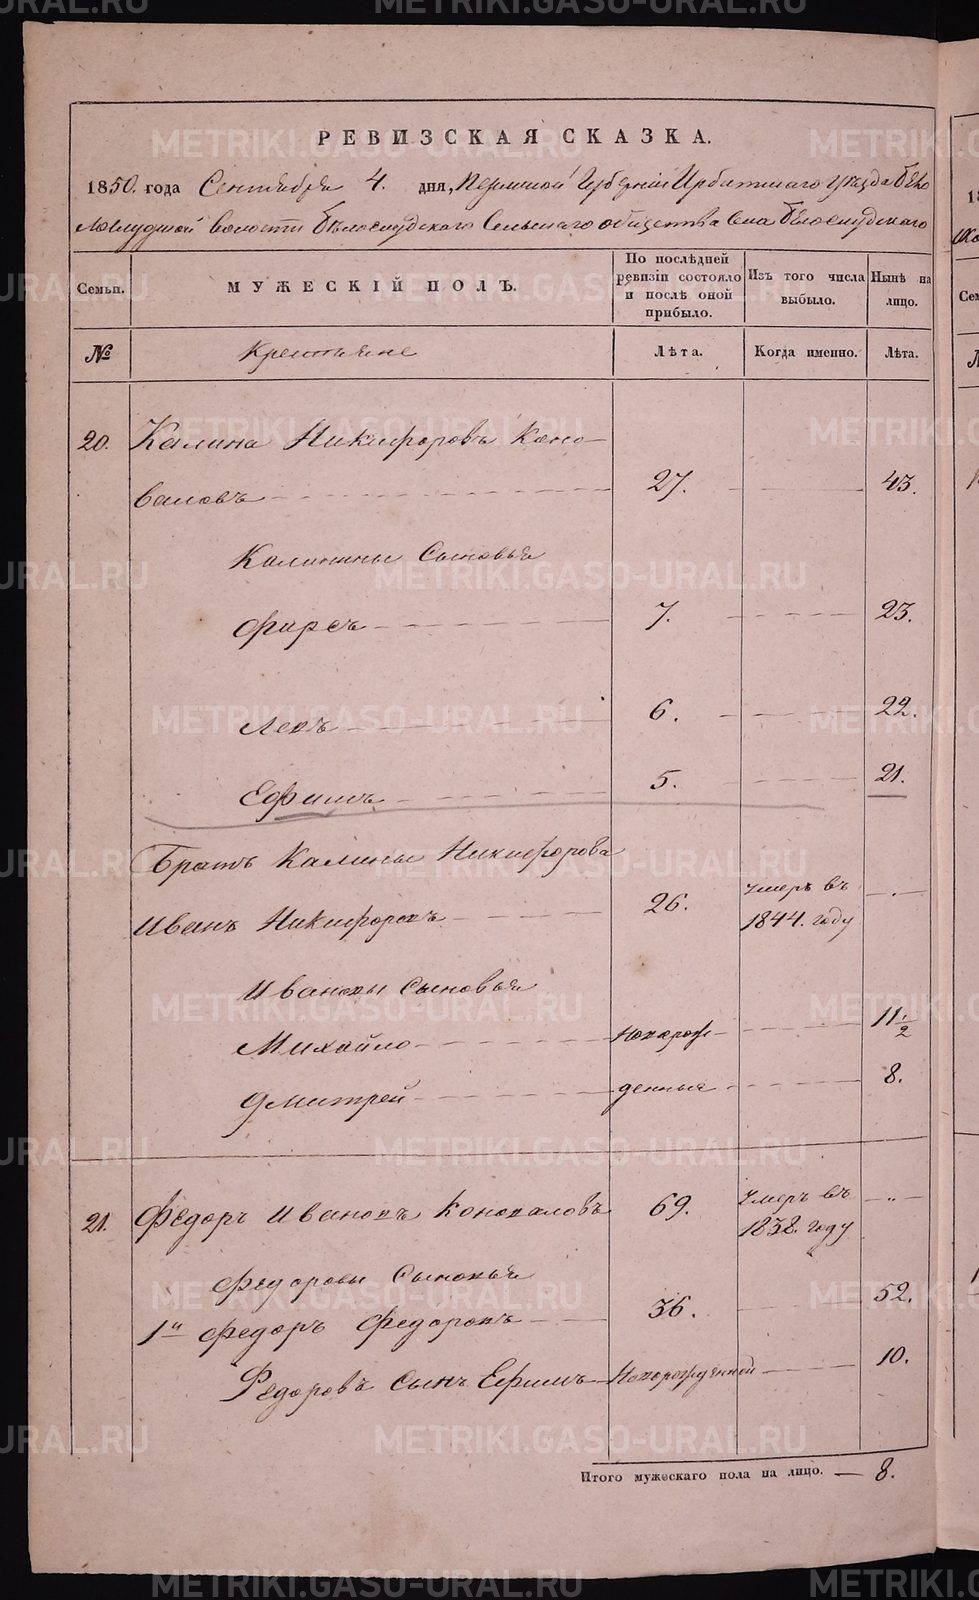 РЕВИЗСКАЯ СКАЗКА.
1850. года Сентября 4. дня, Пермской Губерніи Ирбитскаго Уѣзда Бѣло
Слудской волости Бѣлослудскаго Сельскаго общества Села Бѣлослудскаго
Семьи. МУЖЕСКІЙ ПОЛЪ. По послѣдней ревизіи состояло и послѣ оной прибыло. Изъ того числа выбыло. Нынѣ на лицо.
№ Крестьяне Лѣта. Когда именно. Лѣта.
20. Калина Никифоровъ Коно-
валовъ 27. 43.
Калинины Сыновья
Фирсъ 7. 23.
Левъ 6. 22.
Ефимъ 5. 21.
Братъ Калины Никифорова
Иванъ Никифоровъ 26. умеръ въ 1844. году
Ивановы Сыновья
Михайло новорож- 11 1/2
Дмитрей денные 8.
21. Федоръ Ивановъ Коноваловъ 69. умеръ въ 1838. году
Федоровы Сыновья
1й Федоръ Федоровъ 36. 52.
Федоровъ Сынъ Ефимъ Новорожденной 10.
Итого мужескаго пола на лицо. — 8.
METRIKI.GASO-URAL.RU